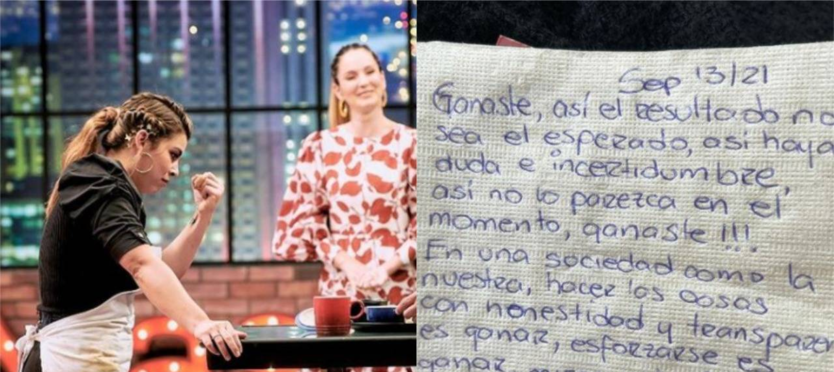 Sep 13/21
Ganaste, así el resultado no
sea el esperado, asi haya
duda e incertidumbre,
así no lo parezca en el
momento, ganaste!!!
En una sociedad como la
nuestra, hacer las cosas
con honestidad y transparen
es ganar, esforzarse es
ganar